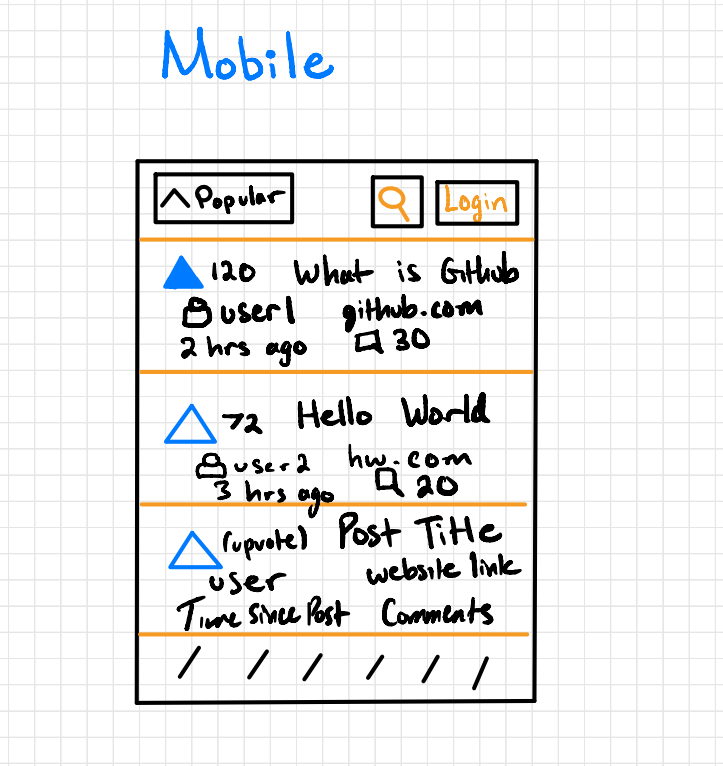 Mobile
Popular Login
120 What is GitHub
user1 github.com
2 hrs ago 30
72 Hello World
user2 hw.com
3 hrs ago 20
(upvote) Post Title
user website link
Time Since Post Comments